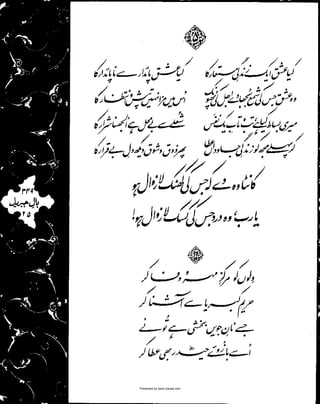 کیا عشق ایک زندگیِ مستعار کا کیا عشق پائدار سے ناپائدار کا
وہ عشق جس کی شمع بجھا دے اجل کی پھونک اُس میں مزا نہیں تپش و انتظار کا
میری بساط کیا ہے تب و تابِ یک نفس شعلے سے بے محل ہے اُلجھنا شرار کا
کر پہلے مجھ کو زندگیِ جاوداں عطا پھر ذوق و شوق دیکھ دلِ بے قرار کا
کانٹا وہ دے کہ جس کی کھٹک لازوال ہو
یارب وہ درد جس کی کسک لازوال ہو!
دلوں کو مرکزِ مہر و وفا کر
حریمِ کبریا سے آشنا کر
جسے نانِ جویں بخشی ہے تُو نے
اُسے بازوئے حیدر بھی عطا کر
بالِ جبریل
۲۵
Presented by www.ziaraat.com